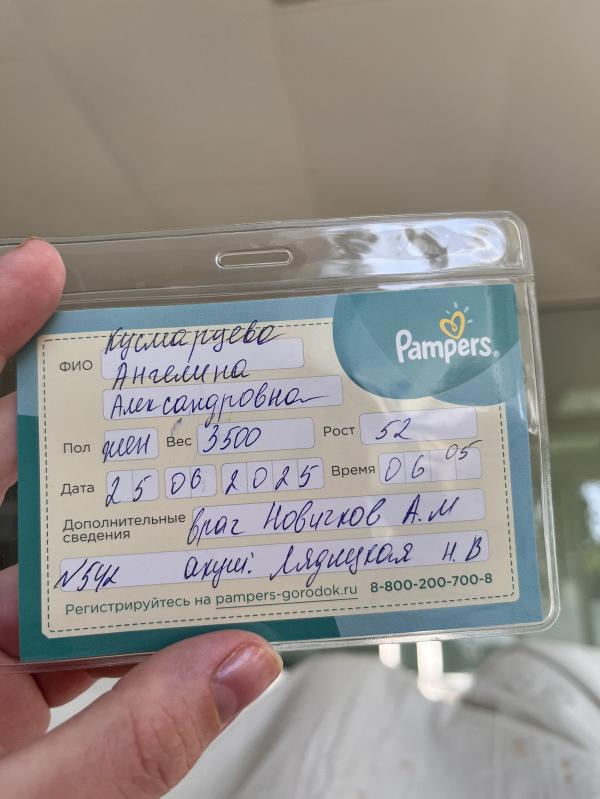 Pampers®
ФИО Кусмарцева
Ангелина
Александровна
Пол жен Вес 3500 Рост 52
Дата 25 06 2025 Время 06 05
Дополнительные сведения врач Новичков А.М
N542 акуш: Лядицкая Н.В
Регистрируйтесь на pampers-gorodok.ru 8-800-200-700-8